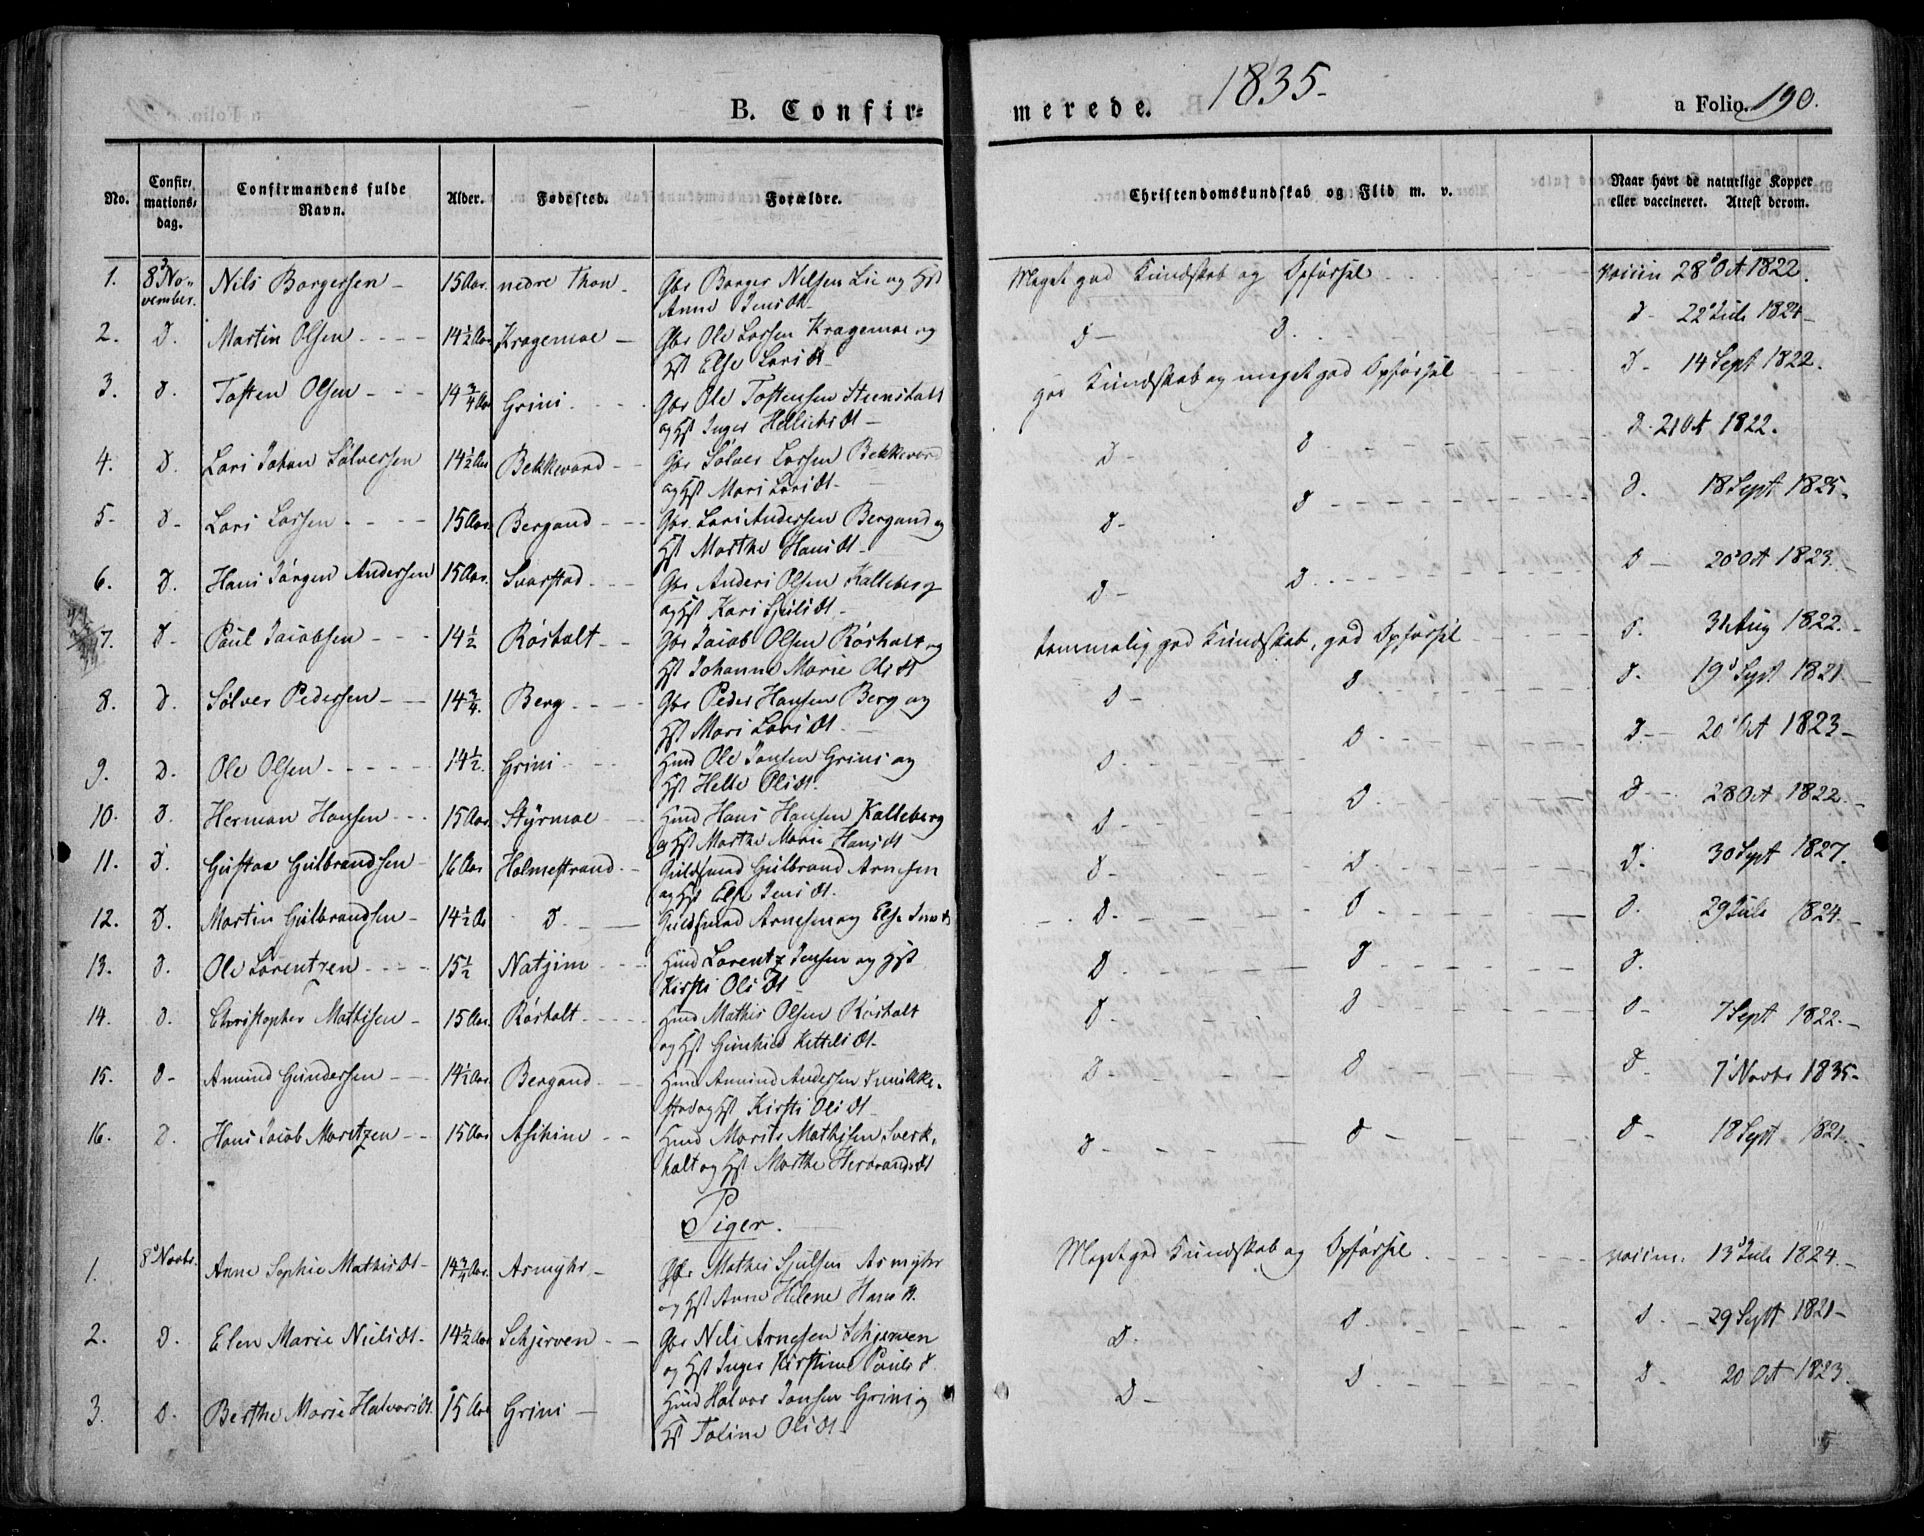 1835.
B. Confir=
merede.
a Folio 190.
No.
Confir-
mations-
dag.
Confirmandens fulde
Navn.
Alder.
Fødested.
Forældre.
Christendomskundskab og Flid m. v.
Naar havt de naturlige Kopper
eller vaccineret. Attest derom.
1. 8de No-
vember. Nils Borgersen 15 Aar. nedre Thon Gbr Borger Nilsen Lie og Hst
Anne Jensdt. Meget god Kundskab og Opførsel vaccin 28 Oct 1822.
2. D. Martin Olsen 14½ Aar Kragemoe Gbr Ole Larsen Kragemoe og
Hst Else Larsdt D D. D 22 Juli 1824
3. D. Tosten Olsen 14¾ Aar Grini Gbr Ole Tostensen Steensholt
og Hst Inger Hellichsdt god Kundskab og meget god Opførsel D 14 Sept 1822.
4. D. Lars Johan Sølversen 14½ Aar Bekkevard Gbr Sølver Larsen Bekkevard
og Hst Mari Larsdt D D D. 21 Oct 1822.
5. D Lars Larsen 15 Aar. Bergand Gbr. Lars Andersen Bergand og
Hst Marthe Hansdt D D D. 18 Sept 1825.
6. D. Hans Jørgen Andersen 15 Aar. Svarstad Gbr Anders Olsen Kalleberg
og Hst Kari Sjulsdt D D. D 20 Oct 1823.
7. D. Paul Jacobsen 14½ Røsholt Gbr Jacob Olsen Røsholt og
Hst Johanne Marie Olsdt temmelig god Kundskab, god Opførsel D. 31 Aug 1822.
8. D. Sølver Pedersen 14¾. Berg Gbr Peder Hansen Berg og
Hst Mari Larsdt D D D. 19 Sept 1821
9. D. Ole Olsen 14½. Grini Hmd Ole Jonsen Grini og
Hst Helle Olsdt. D. D D. 20 Oct 1823
10. D. Herman Hansen 15 Aar. Styrmoe Hmd Hans Hansen Kalleberg
og Hst Marthe Marie Hansdt D D D 28 Oct 1822.
11. D. Gustav Gulbrandsen 16 Aar Holmestrand Guldsmed Gulbrand Arnesen
og Hst Else Jensdt. D D. D. 30 Sept 1827.
12. D. Martin Gulbrandsen 14½ Aar D. Guldsmed Arnesen og Else Jensdt D. D D. 29 Juli 1824.
13. D. Ole Lorentzen 15½ Natjim Hmd Lorentz Jensen og Hst
Kirsti Olsdt D D D.
14. D. Christopher Mathisen 15 Aar. Røsholt Hmd Mathis Olsen Røsholt
og Hst Gunhild Kittelsdt D. D D 7 Sept 1822.
15. D Amund Gundersen 14½ Aar. Bergand Hmd Amund Andersen
og Hst Kirsti Olsdt D. D D 7 Novbr 1835
16. D. Hans Jacob Moritzen 15 Aar Asihim Hmd Morits Mathisen Sverk-
holt og Hst Marthe Herbrandsdt D D D 18 Sept 1821.
Piger.
1. 8 Novbr. Anne Sophie Mathisdt 14¾ Aar. Asmyhr Gbr Mathis Sjulsen Asmyhr
og Hst Anne Helene Hansdt. Meget god Kundskab og Opførsel vaccin. 13 Juli 1824.
2. D. Elen Marie Nielsdt 14½ Aar Schjerven Gbr Nils Arnesen Schjerven
og Hst Inger Kirstine Paulsd. D. D. D. 29 Sept 1821
3. D. Berthe Marie Halvorsdt. 15 Aar Grini Hmd Halvor Jonsen Grini og
Hst Toline Olsdt D D D. 20 Oct 1823